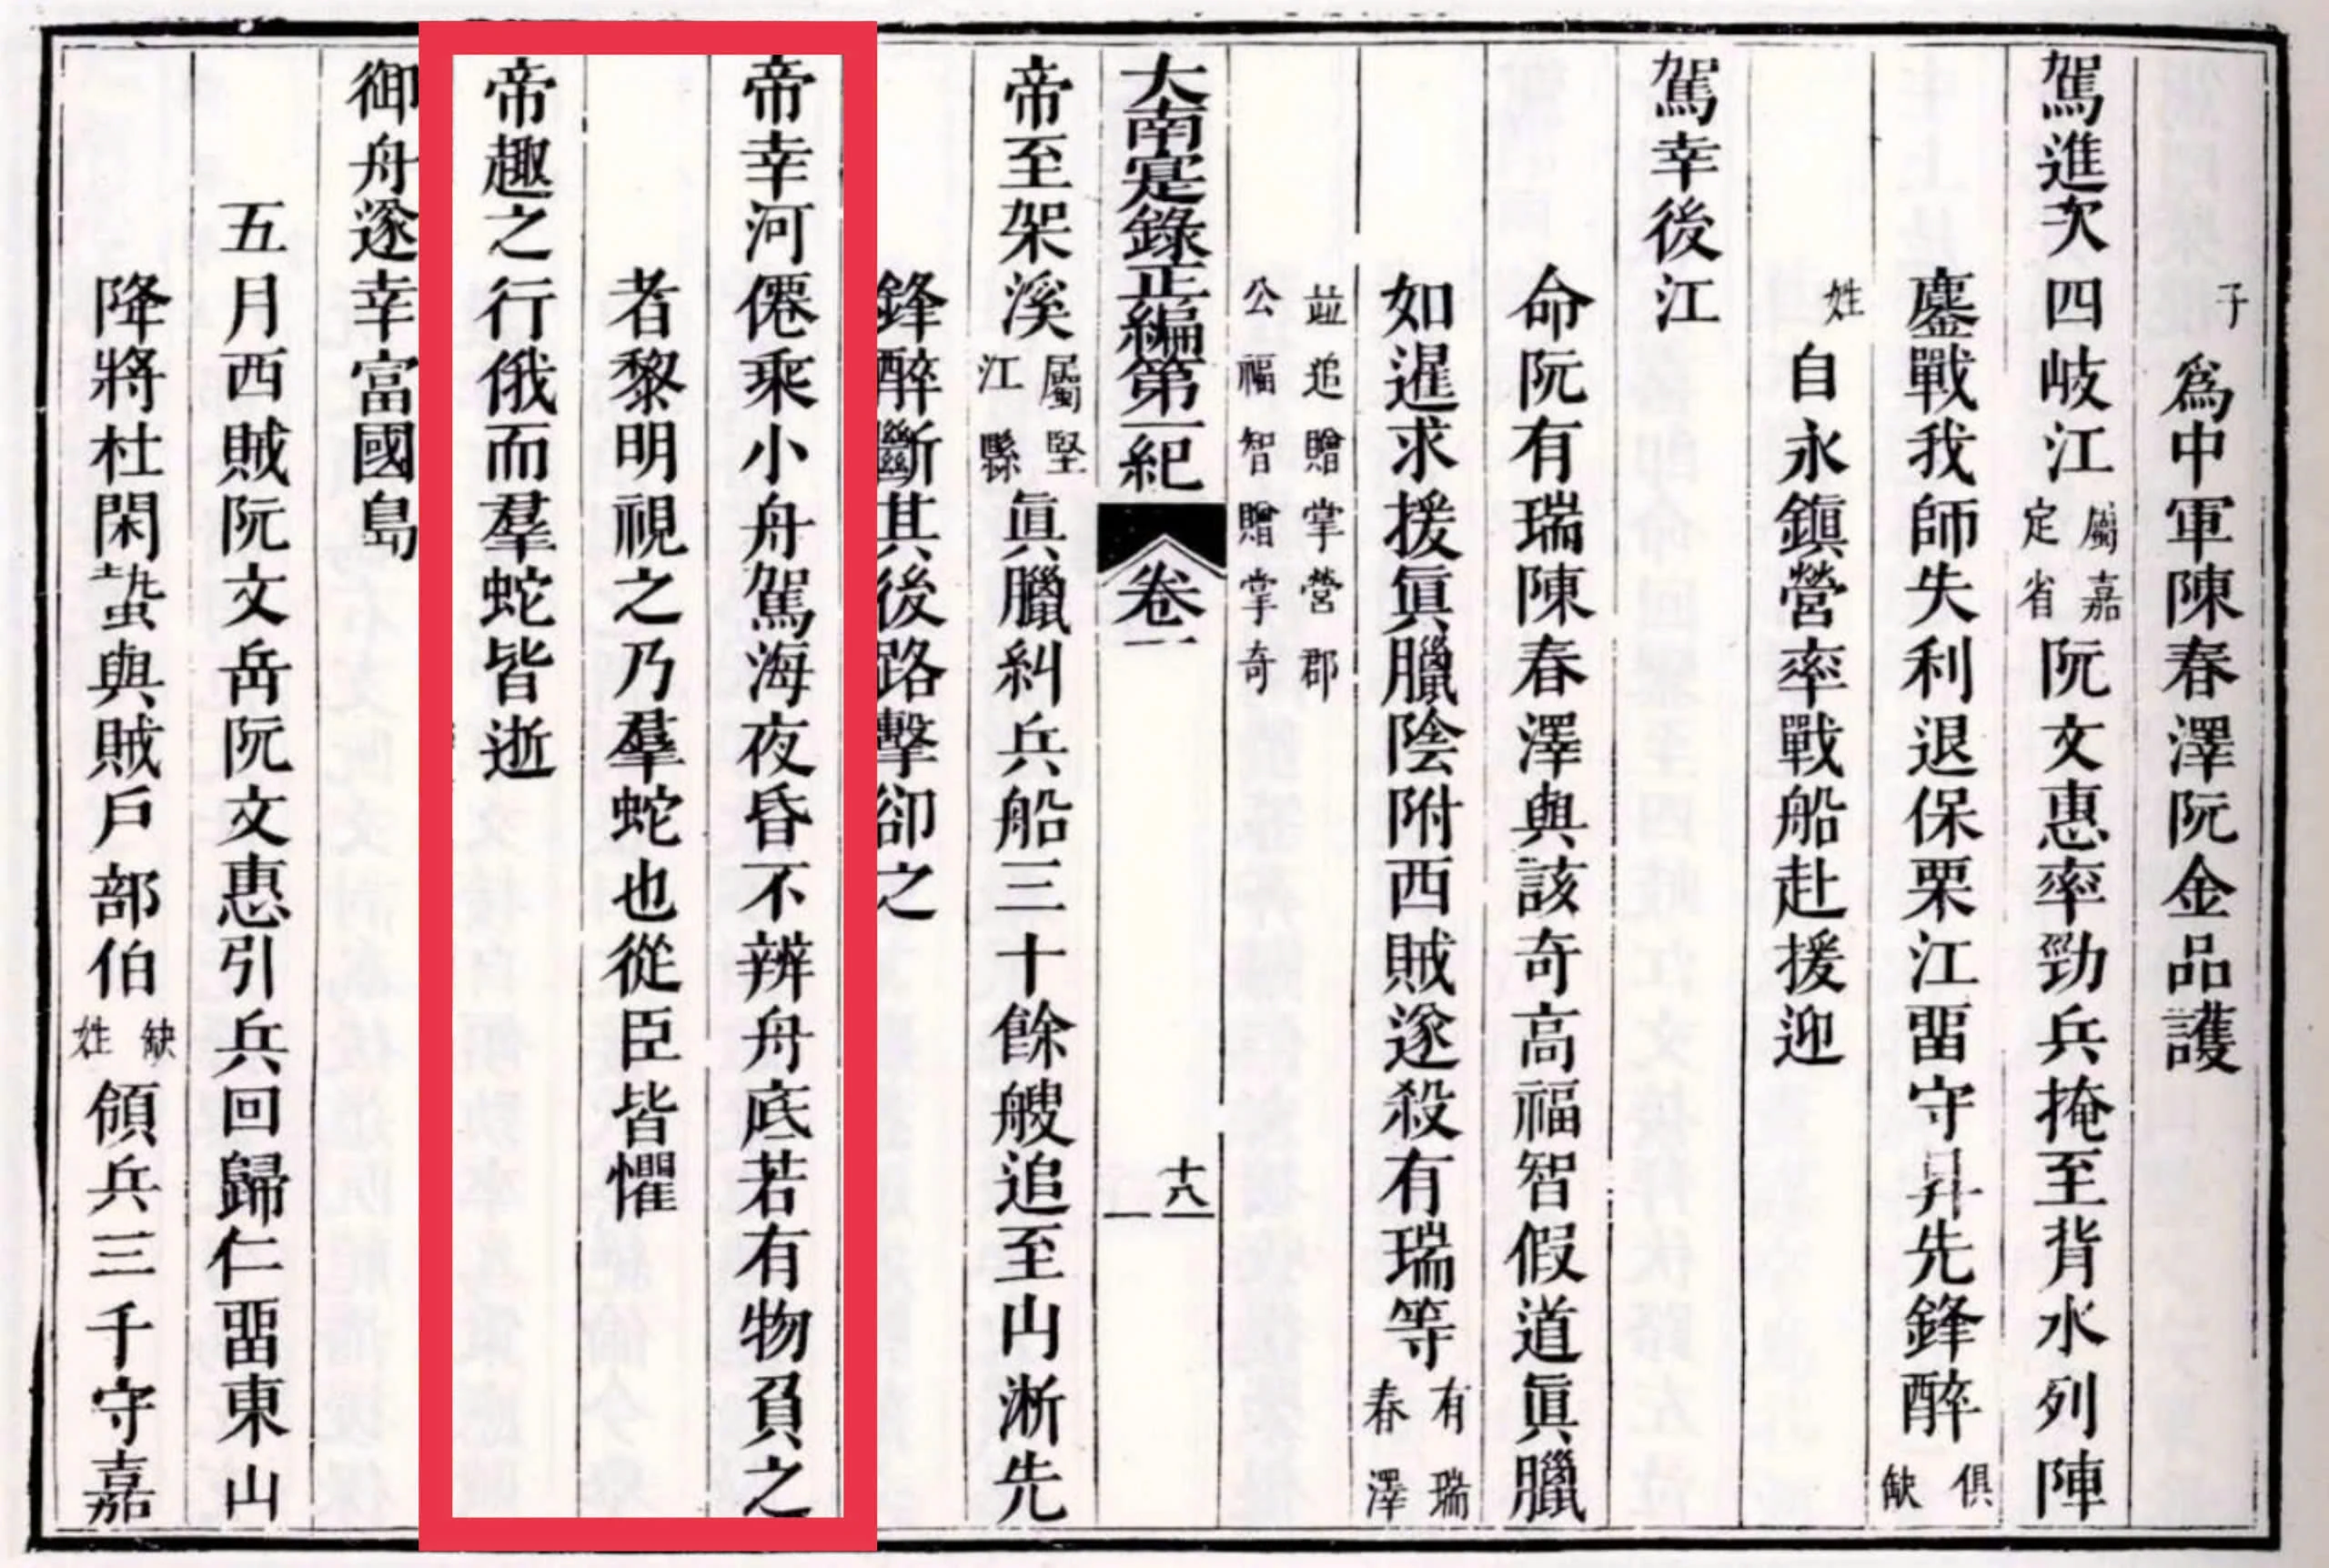 子爲中軍陳春澤阮金品護
駕進次四岐江屬嘉定省阮文惠率勁兵掩至背水列陣
鏖戰我師失利退保栗江畱守昇先鋒醉俱缺
姓自永鎭營率戰船赴援迎
駕幸後江
命阮有瑞陳春澤與該奇高福智假道眞臘
如暹求援眞臘陰附西賊遂殺有瑞等有瑞春澤
並追贈掌營郡公福智贈掌奇
大南寔錄正編第一紀 卷一 十八
帝至架溪屬堅江縣眞臘糾兵船三十餘艘追至山淅先
鋒醉斷其後路擊卻之
帝幸河僊乘小舟駕海夜昏不辨舟底若有物負之
者黎明視之乃羣蛇也從臣皆懼
帝趣之行俄而羣蛇皆逝
御舟遂幸富國島
五月西賊阮文岳阮文惠引兵回歸仁畱東山
降將杜閑蟄與賊戶部伯缺姓領兵三千守嘉